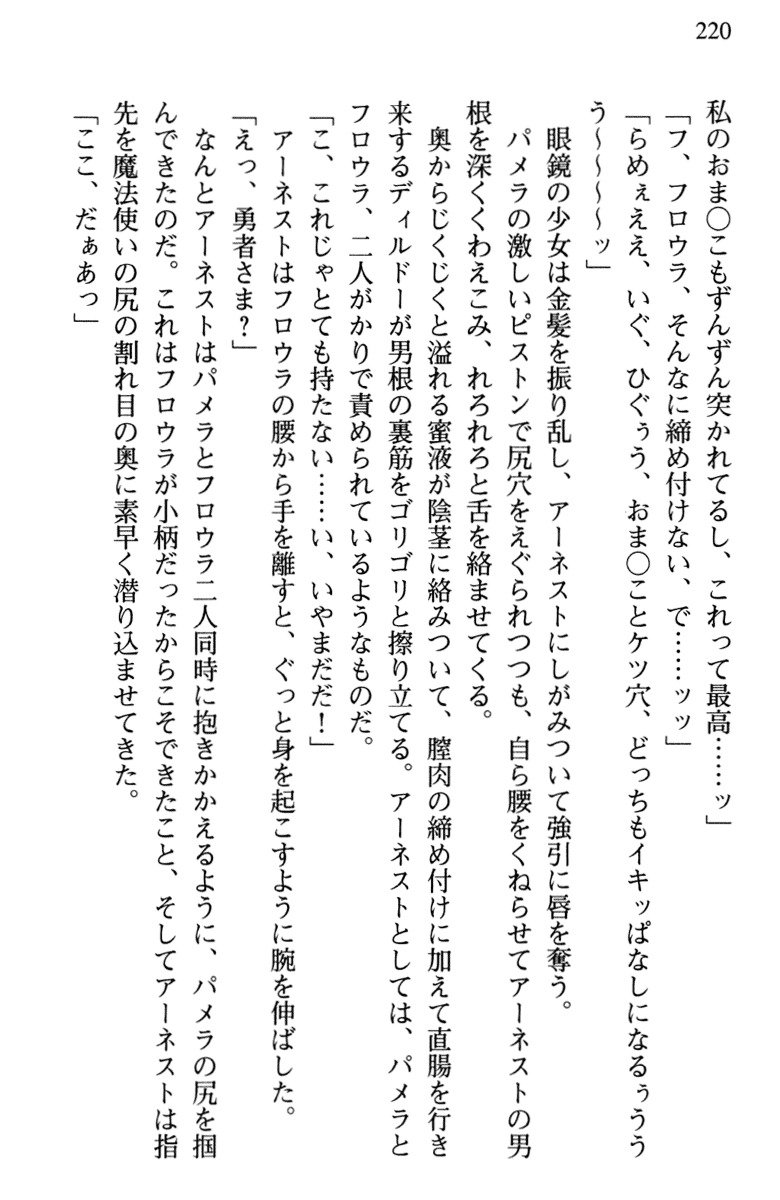 220
私のおま〇こもずんずん突かれてるし、これって最高……ッ」
「フ、フロウラ、そんなに締め付けない、で……ッッ」
「らめぇええ、いぐ、ひぐぅう、おま〇ことケツ穴、どっちもイキッぱなしになるぅうう
う〜〜〜〜ッ」
　眼鏡の少女は金髪を振り乱し、アーネストにしがみついて強引に唇を奪う。
　パメラの激しいピストンで尻穴をえぐられつつも、自ら腰をくねらせてアーネストの男
根を深くくわえこみ、れろれろと舌を絡ませてくる。
　奥からじくじくと溢れる蜜液が陰茎に絡みついて、膣肉の締め付けに加えて直腸を行き
来するディルドーが男根の裏筋をゴリゴリと擦り立てる。アーネストとしては、パメラと
フロウラ、二人がかりで責められているようなものだ。
「こ、これじゃとても持たない……い、いやまだだ！」
　アーネストはフロウラの腰から手を離すと、ぐっと身を起こすように腕を伸ばした。
「えっ、勇者さま？」
　なんとアーネストはパメラとフロウラ二人同時に抱きかかえるように、パメラの尻を掴
んできたのだ。これはフロウラが小柄だったからこそできたこと、そしてアーネストは指
先を魔法使いの尻の割れ目の奥に素早く潜り込ませてきた。
「ここ、だぁあっ」